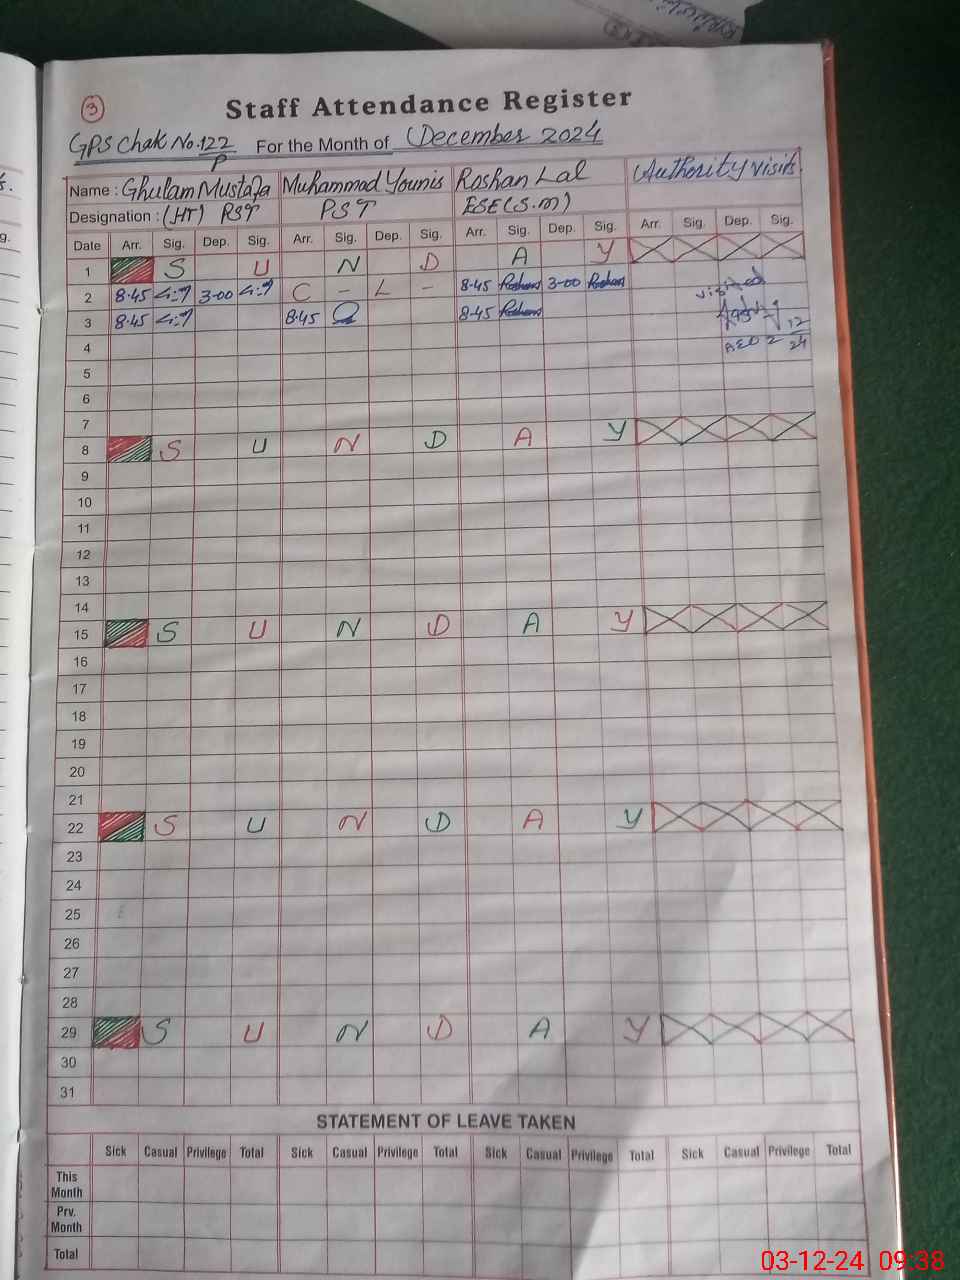 3
Staff Attendance Register
GPS Chak No. 122/P For the Month of December 2024
Name : Ghulam Mustafa Muhammad Younis Roshan Lal Authority visits.
Designation : (HT) PST PST ESE(S.M)
Date Arr. Sig. Dep. Sig. Arr. Sig. Dep. Sig. Arr. Sig. Dep. Sig. Arr. Sig. Dep. Sig.
1 S U N D A Y
2 8-45 3-00 C - L - 8-45 Roshan 3-00 Roshan visited
3 8-45 8-45 8-45 Roshan 12
4 24
5
6
7
8 S U N D A Y
9
10
11
12
13
14
15 S U N D A Y
16
17
18
19
20
21
22 S U N D A Y
23
24
25
26
27
28
29 S U N D A Y
30
31
STATEMENT OF LEAVE TAKEN
Sick Casual Privilege Total Sick Casual Privilege Total Sick Casual Privilege Total Sick Casual Privilege Total
This Month
Prv. Month
Total
03-12-24 09:38